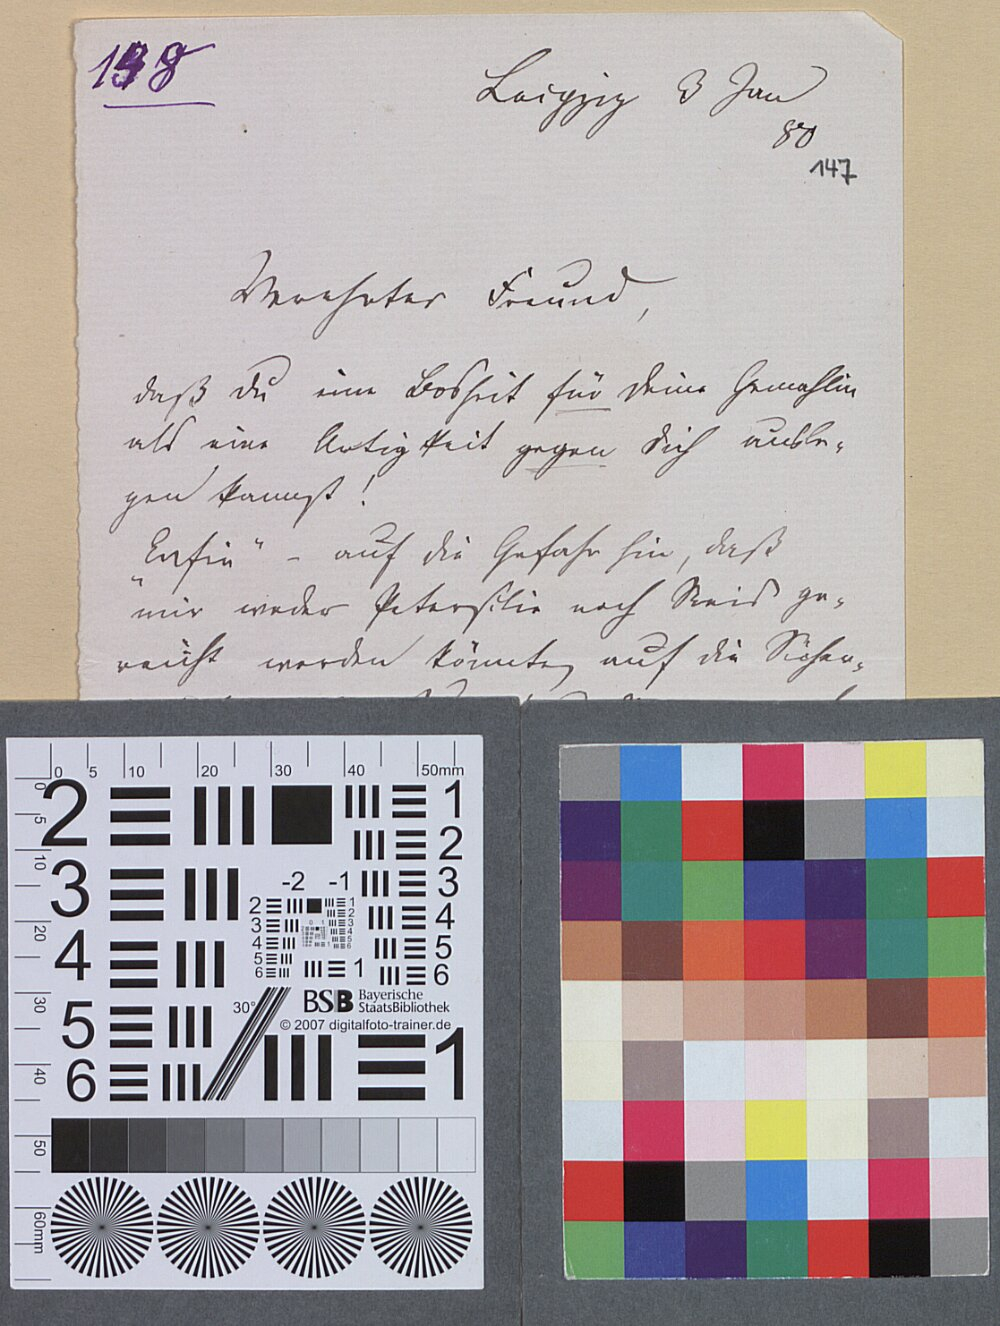 198
Leipzig 3 Jan
80
147
Verehrter Freund,
daß Du eine Bosheit für Deine Gemahlin
als eine Artigkeit gegen Dich ausle-
gen kannst!
auf die Gefahr hin, daß
mir weder Petersilie noch Reis ge-
reicht werden könnte, auf die Sicher-
0 5 10 20 30 40 50mm
0 5 10 20 30 40 50 60mm
2 1
2
3 3
4 4
5 5
6 6
-2 -1
2 1
3 2
4 3
5 4
6 5
6
1
30°
BSB Bayerische
StaatsBibliothek
© 2007 digitalfoto-trainer.de
1